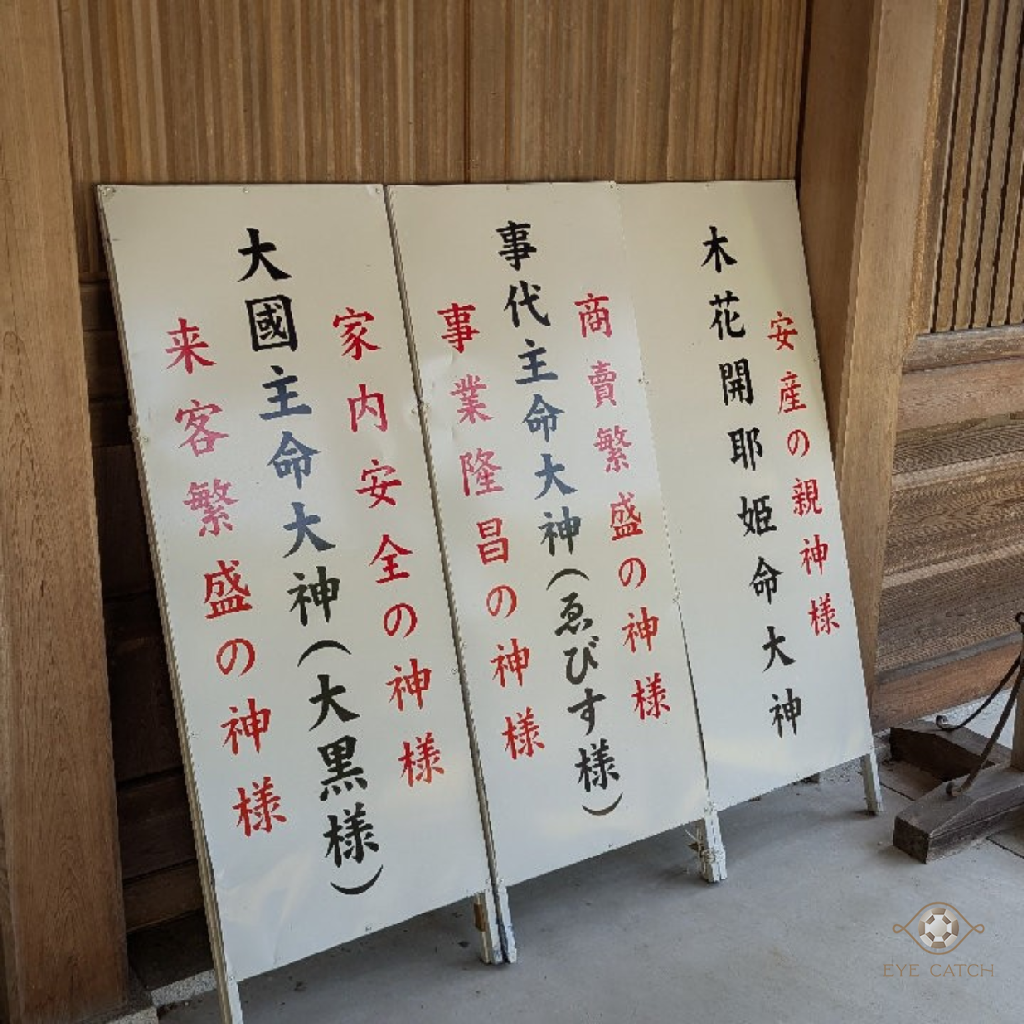 安産の親神様
木花開耶姫命大神
商賣繁盛の神様
事代主命大神(ゑびす様)
事業隆昌の神様
家内安全の神様
大國主命大神(大黒様)
来客繁盛の神様
EYE CATCH